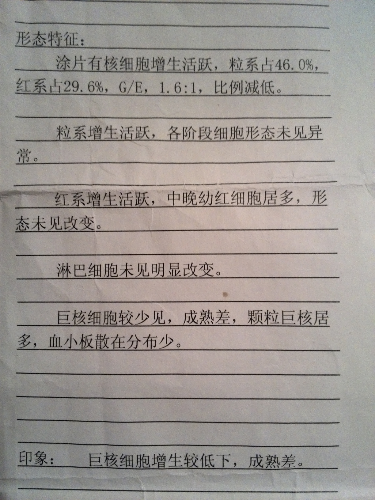 形态特征:
涂片有核细胞增生活跃,粒系占46.0%,
红系占29.6%,G/E,1.6:1,比例减低。
粒系增生活跃,各阶段细胞形态未见异
常。
红系增生活跃,中晚幼红细胞居多,形
态未见改变。
淋巴细胞未见明显改变。
巨核细胞较少见,成熟差,颗粒巨核居
多,血小板散在分布少。
印象: 巨核细胞增生较低下,成熟差。